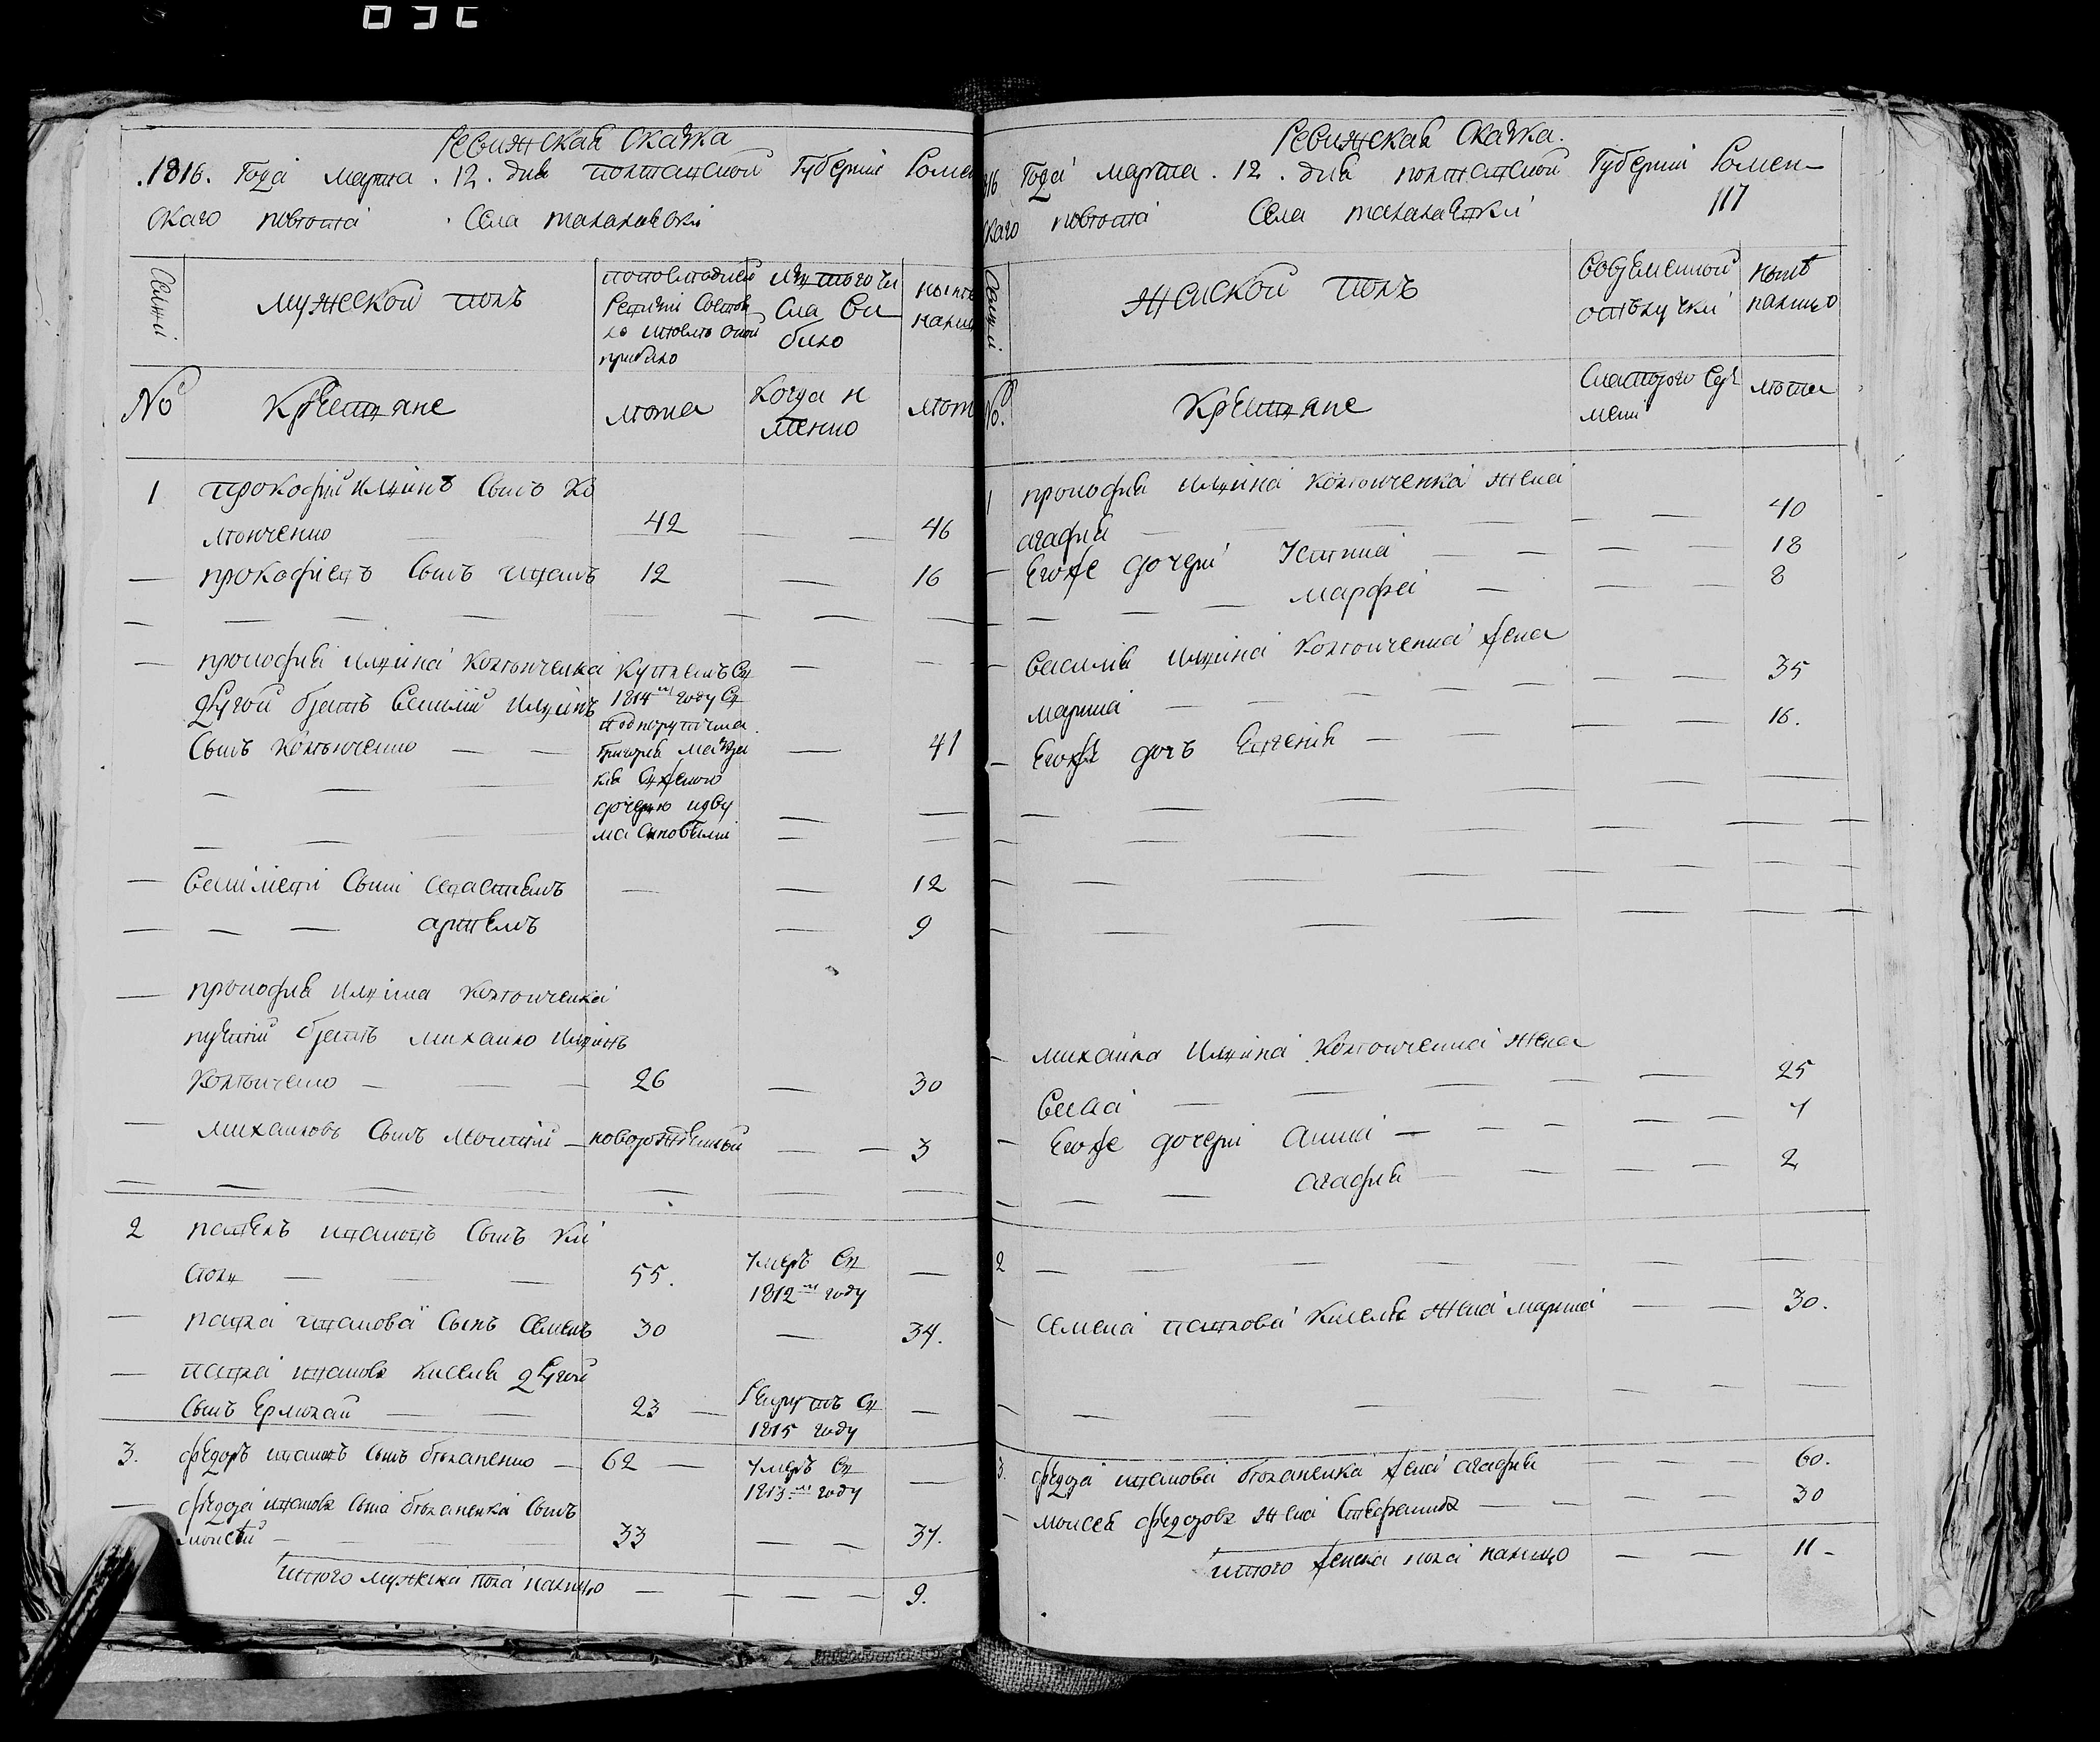 Ревижская Скажка
.1816. Года марта . 12. дня полтавской Губернии Ромен
скаго повѣта Села талалаевки
Семьи
мужеской полъ
пополседней
Ревизии Состоя
ло ипослѣ оной
прибило
Из того чи
сла Ви
било
нынѣ
налицо
№
Крестяне
лѣта
Когда и
менно
лѣта
1 прокофий илїинъ Сынъ Ко
лтонченко — — 42 — — 46
— прокофиевъ Сынъ иванъ 12 — 16
— прокофия илїина Колтонченка
другой братъ Василий илїинъ
Сынъ Колтонченко — — — 41
Купленъ Въ
1814м году Въ
подпорутчика
Григория
Въ женою
дочерю идву
ма синовьями
— Василиеви Сыни Севастиянъ — — 12
— — — артемъ — 9
— прокофия илїина Колтонченка
третий братъ михайло илїинъ
Колтонченко — 26 — 30
— михайловъ Сынъ — новорожденный — — 3
2 павелъ ивановъ Сынъ Ки
сель — — — 55. умеръ Въ
1812м году —
— павла иванова Сынъ Семенъ 30 — 34.
— павла иванова Киселя другой
Сынъ Ермолай — — 23 — Рекрутъ Въ
1815 году —
3. федоръ ивановъ Сынъ белапенко — 62 — умеръ Въ
1813.м году —
— федора иванова Сина белапенка Сынъ
моисей — — — 33 — — 37.
итого мужска пола налицо — — — — 9.
Ревижская Скажка.
1816 Года марта . 12 . дня полтавской Губернии Ромен—
скаго повѣта Села талалаевки 117
Семьи
Женской полъ
Вовременной
отълучки
нынѣ
налицо
№.
Крестяне
Скаторого Вре
мени
лѣта
1 прокофия илїина Колтонченка жена
агафия — — — — — — 40
— Егоже дочери Устина — — — — 18
— — — марфа — — — 8
— Василия илїина Колтонченка жена
марина — — — — — — 35
— Егоже дочъ Евгения — — — — 16.
— михайла илїина Колтонченка жена
Васса — — — — — 25
— Егоже дочери анна — — — — — 4
— — — агафия — — — — 2
2 — — — — — — — —
— Семена павлова Киселя жена марина — — 30.
3. федора иванова белапенка жена агафия — — — 60.
— моисея федорова жена Стефанида — — — — 30
итого женска пола налицо — — 11 -